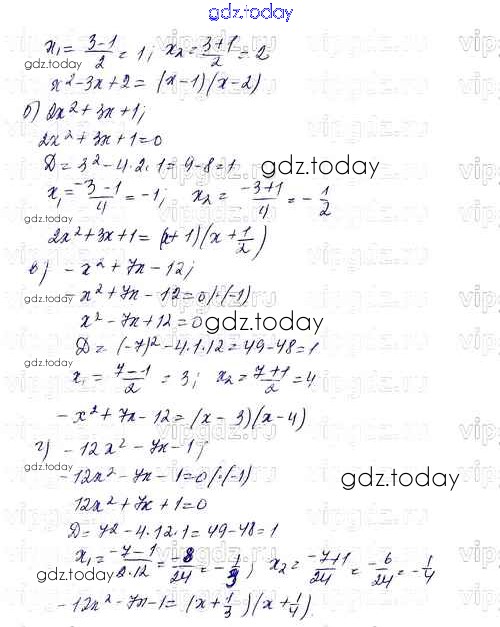 gdz.today
x₁ = (3-1)/2 = 1; x₂ = (3+1)/2 = 2
gdz.today
x² - 3x + 2 = (x-1)(x-2)
б) 2x² + 3x + 1;
2x² + 3x + 1 = 0
D = 3² - 4·2·1 = 9 - 8 = 1
gdz.today
x₁ = (-3-1)/4 = -1; x₂ = (-3+1)/4 = -1/2
2x² + 3x + 1 = (x+1)(x+1/2)
в) -x² + 7x - 12;
-x² + 7x - 12 = 0 /·(-1)
x² - 7x + 12 = 0
gdz.today
D = (-7)² - 4·1·12 = 49 - 48 = 1
x₁ = (7-1)/2 = 3; x₂ = (7+1)/2 = 4
gdz.today
-x² + 7x - 12 = (x-3)(x-4)
г) -12x² - 7x - 1;
-12x² - 7x - 1 = 0 /·(-1)
gdz.today
12x² + 7x + 1 = 0
D = 7² - 4·12·1 = 49 - 48 = 1
x₁ = (-7-1)/2·12 = -8/24 = -1/3; x₂ = (-7+1)/24 = -6/24 = -1/4
gdz.today
-12x² - 7x - 1 = (x+1/3)(x+1/4)